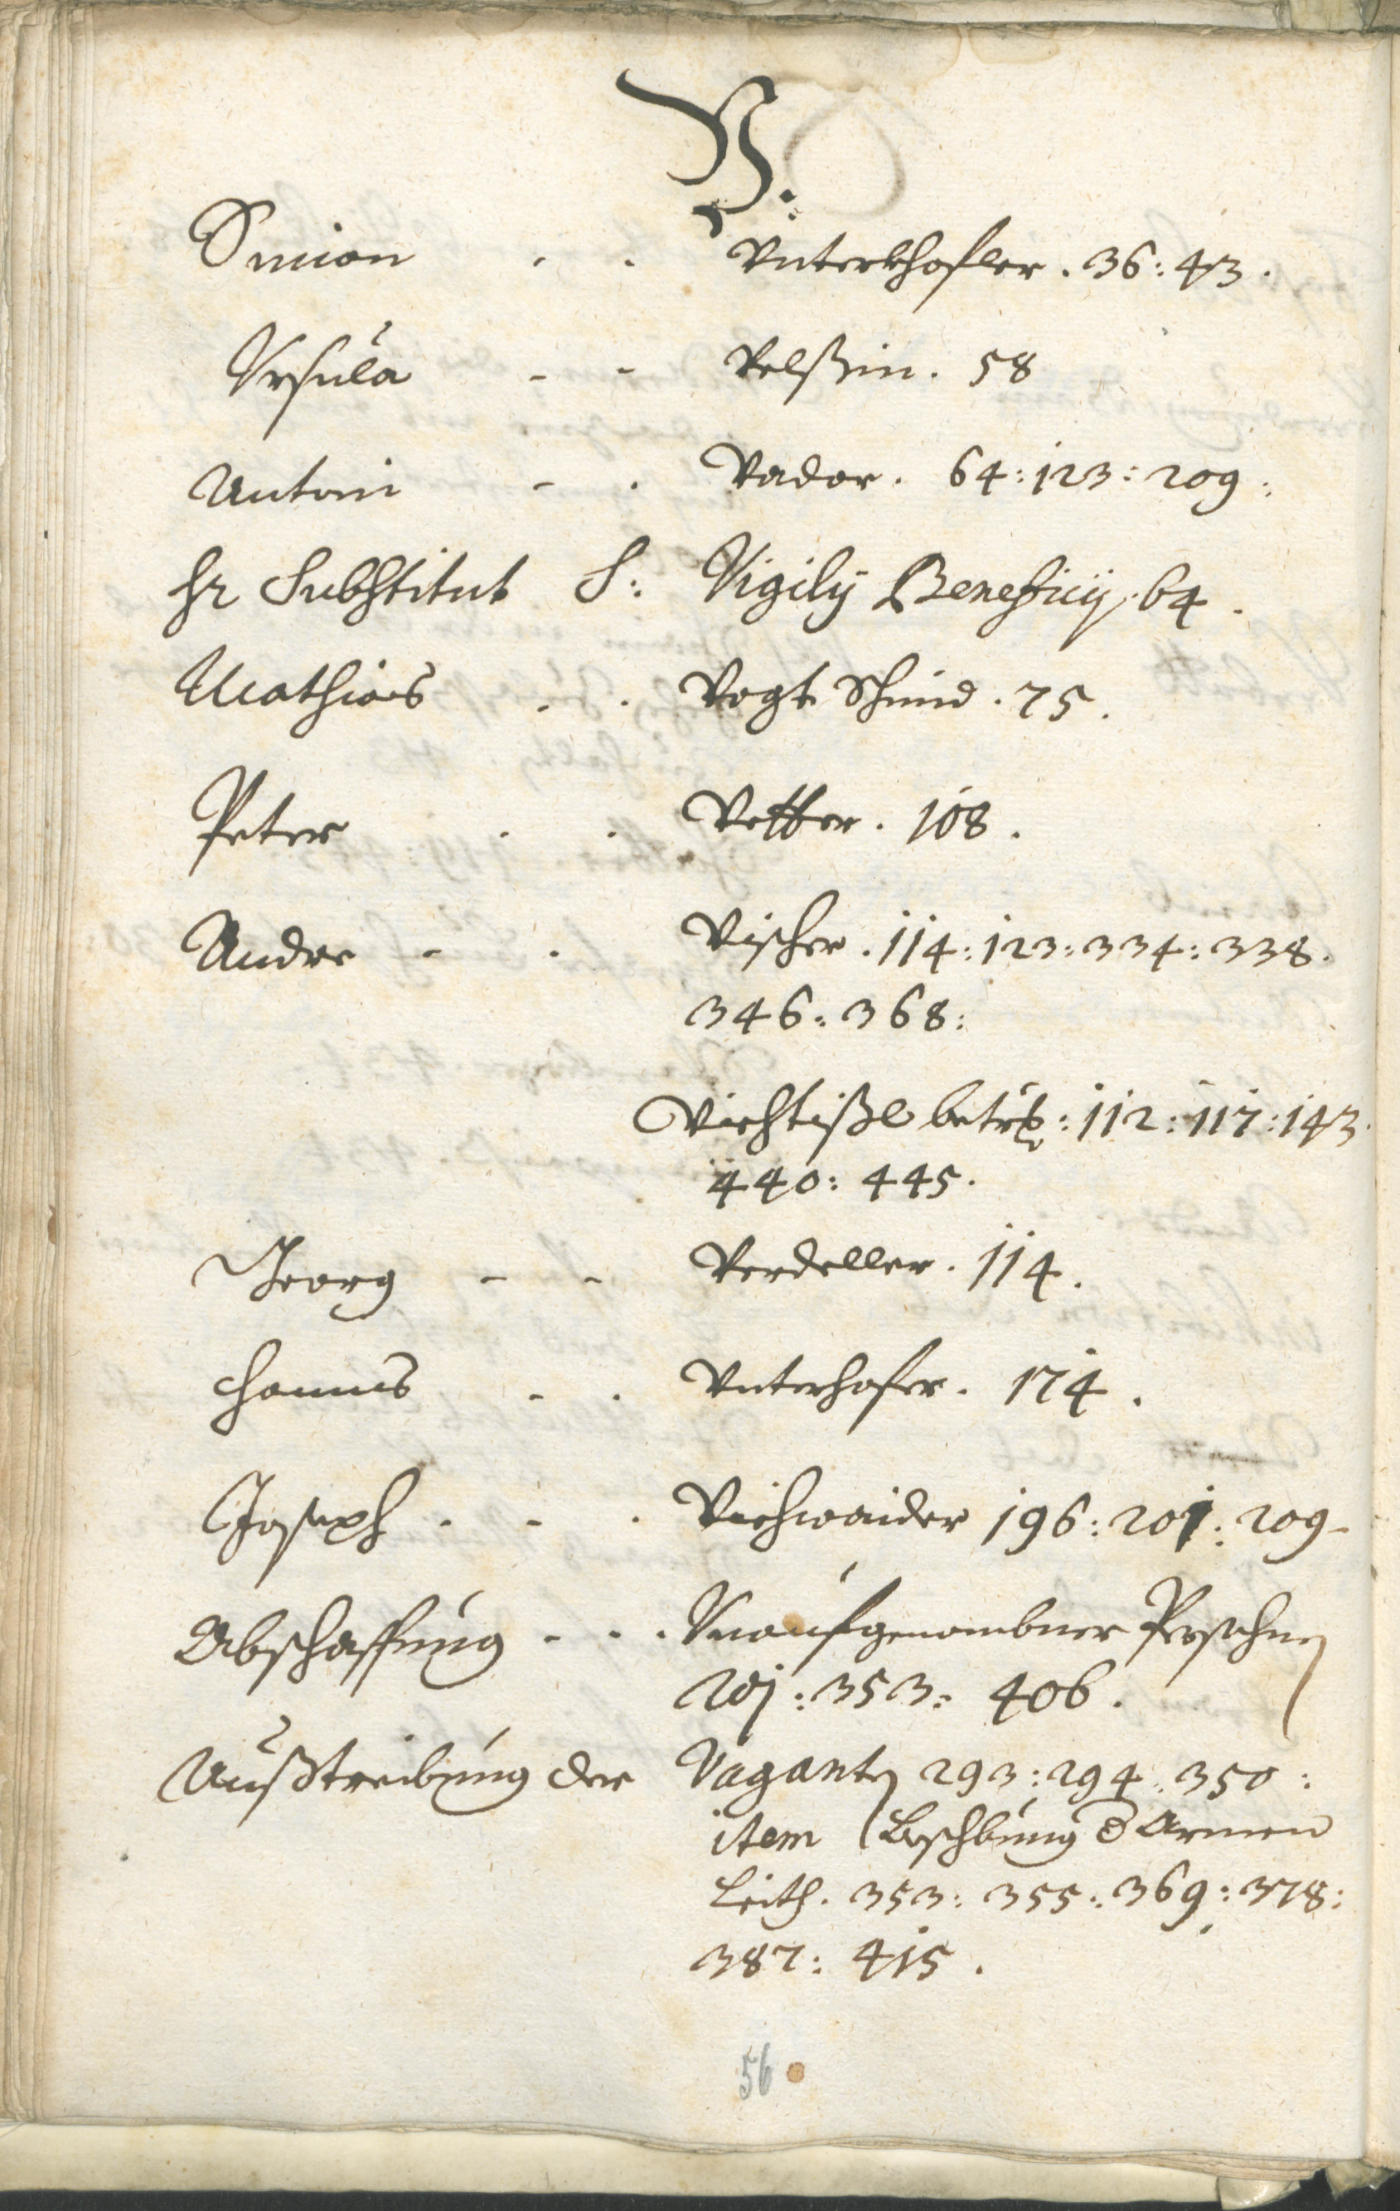 V.
Simion - - Vnterkhofler . 36 : 43 .
Vrsula - - Velßin . 58
Antoni - - Vador . 64 : 123 : 209 :
hr Substitut S: Vigilÿ Beneficÿ . 64 .
Mathias - - Vogt Schmid . 75 .
Peter - - Vetter . 108 .
Andre - - Vischer . 114 : 123 : 334 : 338 .
346 : 368 :
Viechtißl betr: : 112 : 117 : 143 .
440 : 445 .
Georg - - Verdeller . 114 .
Hanns - - Vnterhofer . 174 .
Joseph - - - Viehwaider 196 : 201 : 209 -
Abschaffung - - - Vnaufgenombner Persohnen
201 : 353 : 406 .
Außtreibung der Vaganten 293 : 294 : 350 :
item Beschbung d Armen
Leith . 353 : 355 : 369 : 378 :
387 : 415 .
56